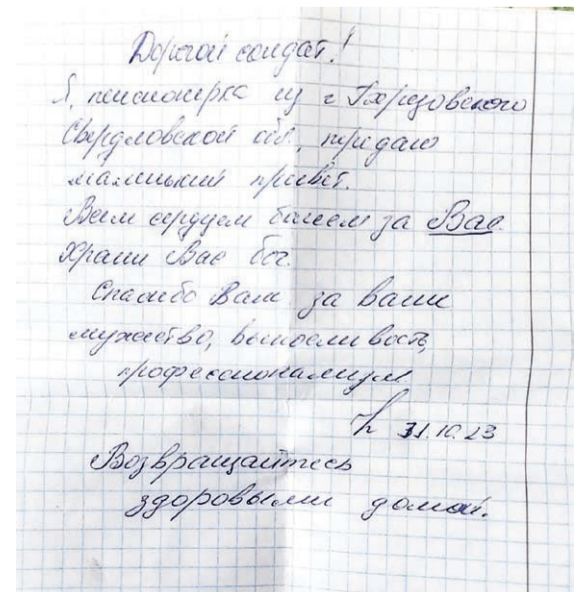 Дорогой солдат!
Я, пенсионерка из г Берёзовского
Свердловской обл., передаю
маленький привет.
Всем сердцем болеем за Вас.
Храни Вас бог.
Спасибо Вам за ваши
мужество, выносливость,
профессионализм
31.10.23
Возвращайтесь
здоровыми домой.